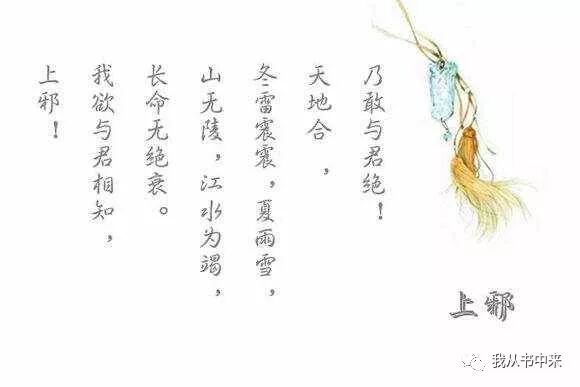 上邪！
我欲与君相知，
长命无绝衰。
山无陵，江水为竭，
冬雷震震，夏雨雪，
天地合，
乃敢与君绝！
上邪
我从书中来